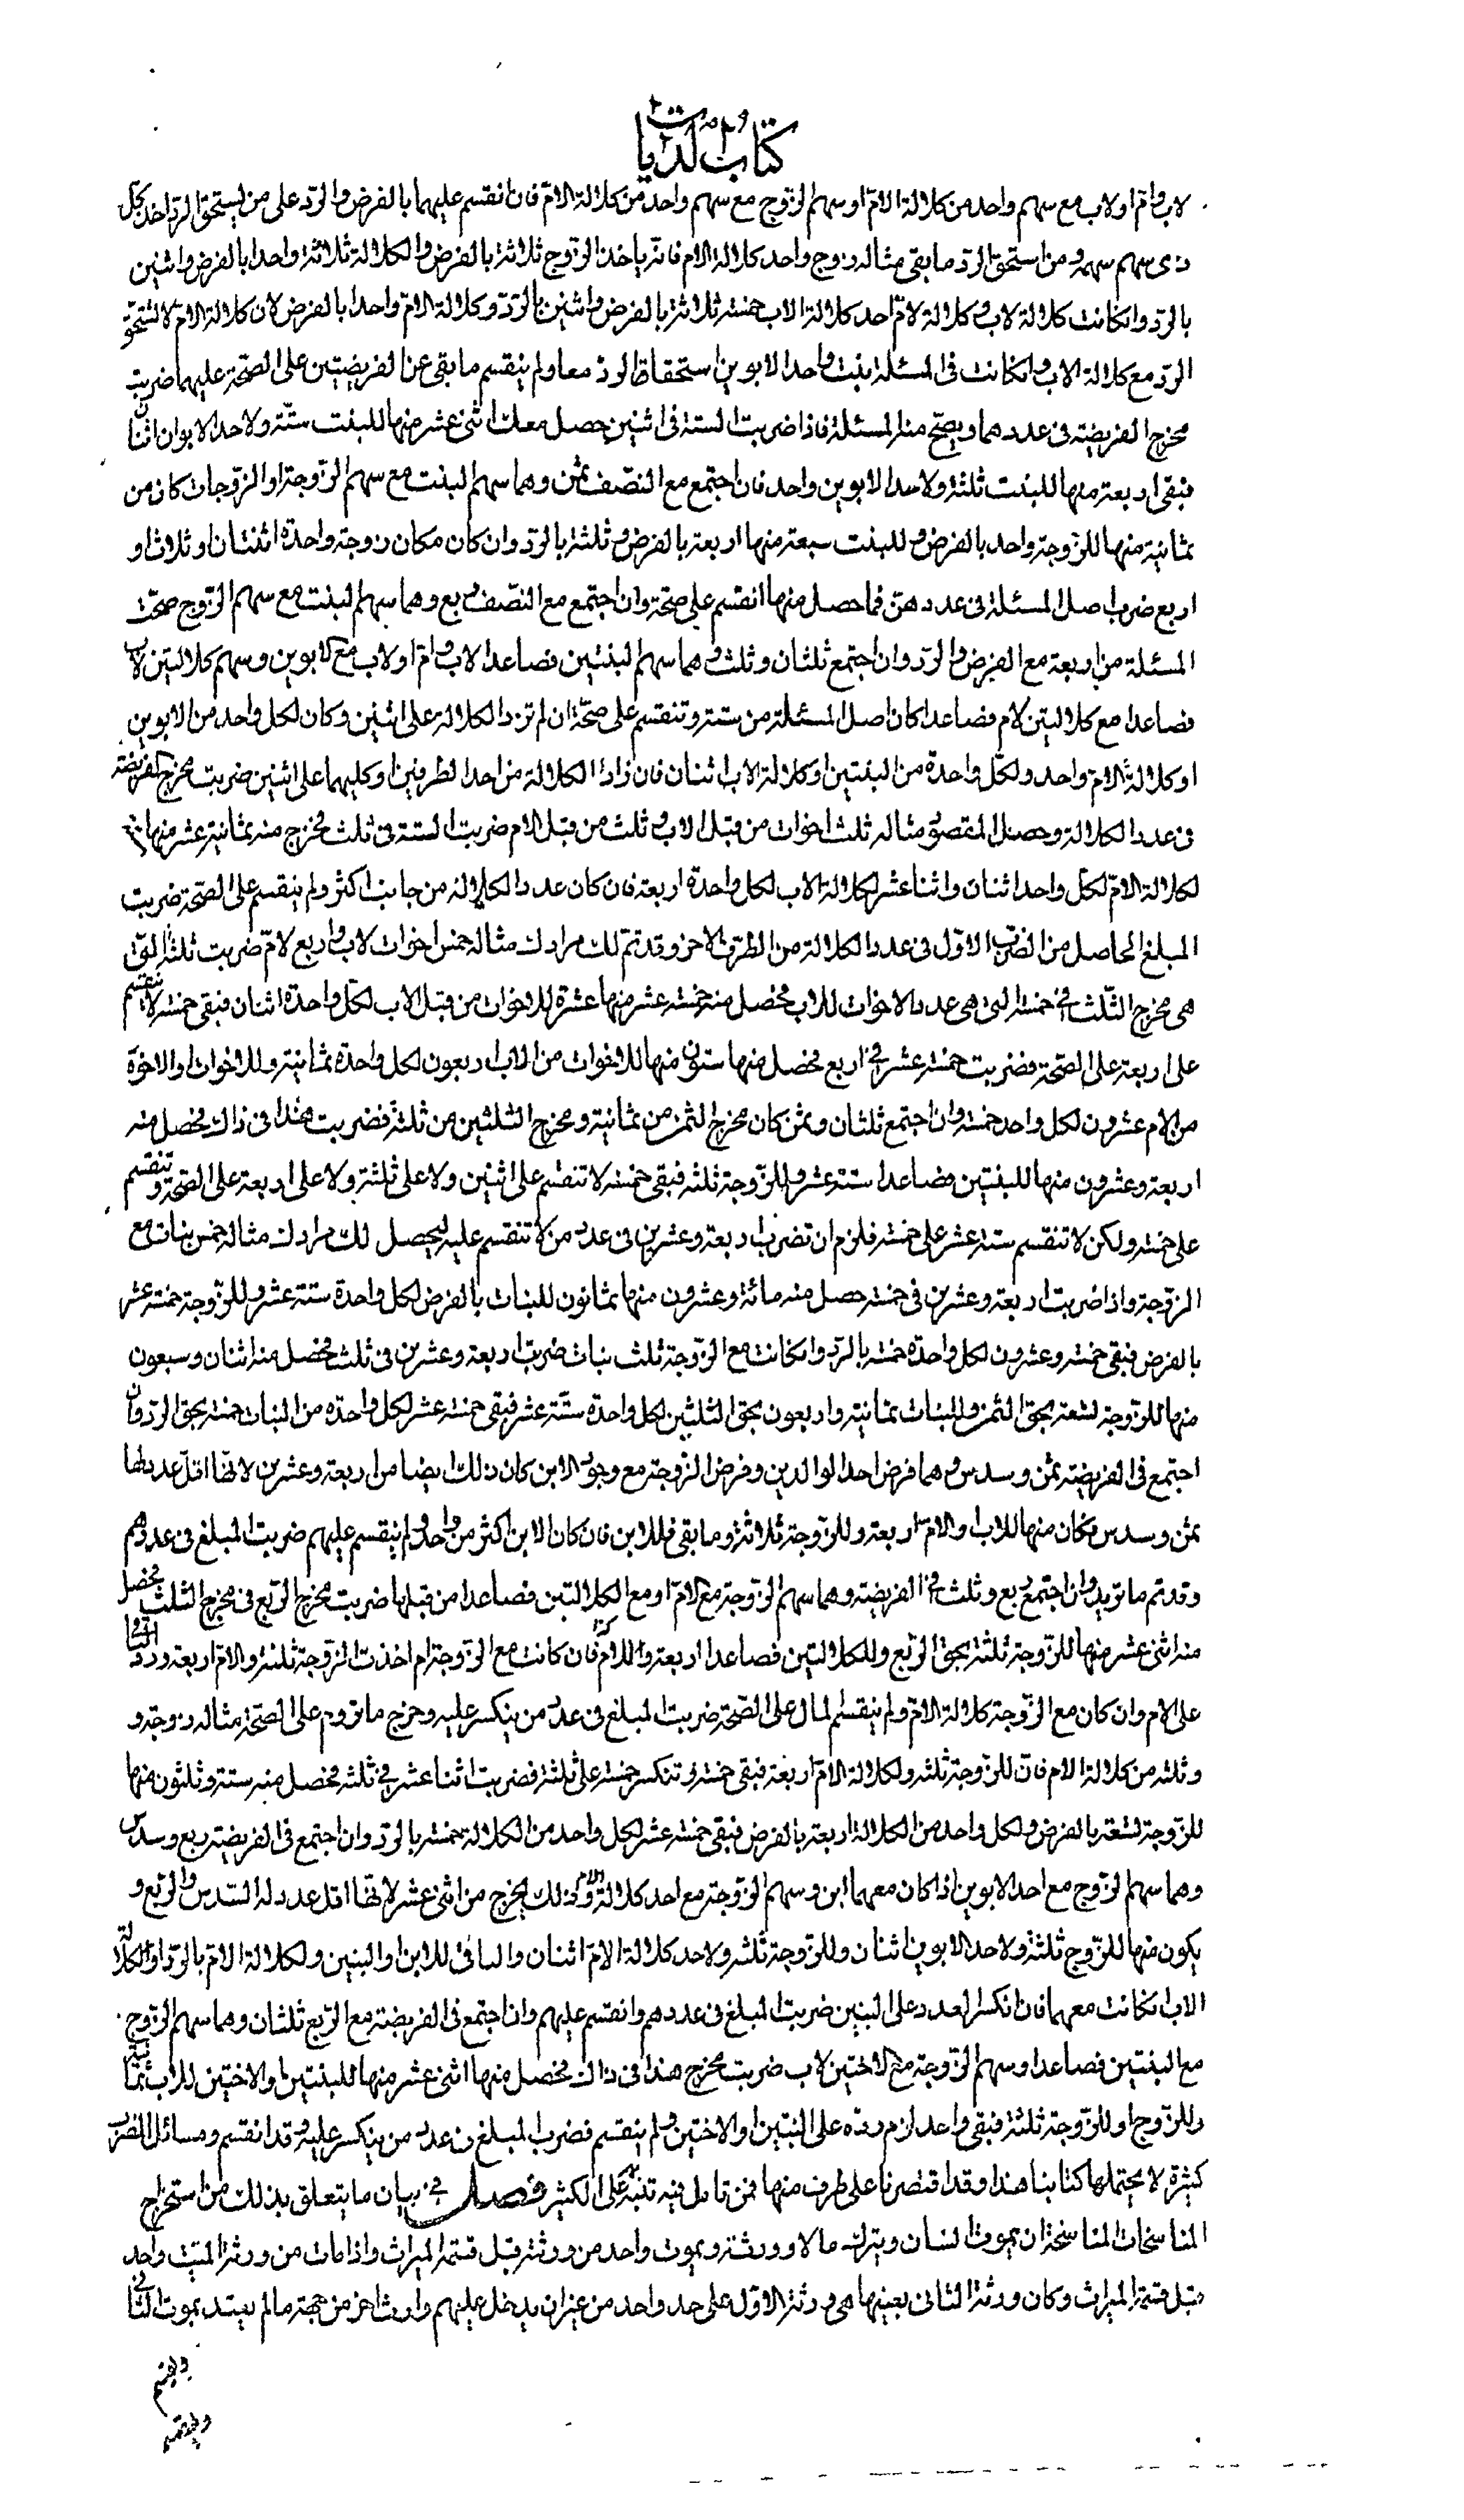 كتاب الديات
لاب وام او لاب مع سهم واحد من كلالة الام او سهم الزوج مع سهم واحد من كلالة الام فان انقسم عليهما بالفرض والرد على من يستحق الرد اخذ كل
ذى سهم سهمه ومن استحق الرد ما بقى مثاله زوج واحد كلالة الام فانه ياخذ الزوج ثلاثة بالفرض والكلالة ثلاثة واحدا بالفرض واثنين
بالرد وان كانت كلالة لاب وكلالة لام احد كلالة الاب خمسة ثلاثة بالفرض واثنين بالرد وكلالة الام واحدا بالفرض لان كلالة الام لا تستحق
الرد مع كلالة الاب وان كانت فى المسئلة بنت واحد الابوين استحقا الرد معا ولم ينقسم ما بقى عن الفريضتين على الصحة عليهما ضربت
مخرج الفريضة فى عددهما ويصح منه المسئلة فاذا ضربت الستة فى اثنين حصل معك اثنى عشر منها للبنت ستة ولاحد الابوان اثنان
فبقى اربعة منها للبنت ثلثة ولاحد الابوين واحد فان اجتمع مع النصف ثمن وهما سهم البنت مع سهم الزوجة او الزوجات كان من
ثمانية منها للزوجة واحد بالفرض وللبنت سبعة منها اربعة بالفرض وثلثة بالرد وان كان مكان زوجة واحدة اثنتان او ثلاث او
اربع ضرب اصل المسئلة فى عددهن فما حصل منها انقسم على صحة وان اجتمع مع النصف ربع وهما سهم البنت مع سهم الزوج صحت
المسئلة من اربعة مع الفرض والرد وان اجتمع ثلثان وثلث وهما سهم البنتين فصاعدا لاب وام او لاب مع الابوين وسهم كلالتين لاب
فصاعدا مع كلالتين لام فصاعدا كان اصل المسئلة من ستة وتنقسم على صحة ان لم تزد الكلالة على اثنين وكان لكل واحد من الابوين
او كلالة الام واحد ولكل واحدة من البنتين او كلالة الاب اثنان فان زاد الكلالة من احد الطرفين او كليهما على اثنين ضربت مخرج الفريضة
فى عدد الكلالة وحصل المقصود مثاله ثلث اخوات من قبل الاب وثلث من قبل الام ضربت الستة فى ثلث فخرج منه ثمانية عشر منها ستة
لكلالة الام لكل واحد اثنان واثنا عشر لكلالة الاب لكل واحدة اربعة فان كان عدد الكلالة من جانب اكثر ولم ينقسم على الصحة ضربت
المبلغ الحاصل من الضرب الاول فى عدد الكلالة من الطرف الاخر وقد تم لك مرادك مثاله خمس اخوات لاب واربع لام ضربت ثلثة التى
هى مخرج الثلث فى خمسة التى هى عدد الاخوات للاب فحصل منه خمسة عشر منها عشرة للاخوات من قبل الاب لكل واحدة اثنان فبقى خمسة لا تنقسم
على اربعة على الصحة فضربت خمسة عشر فى اربع فحصل منها ستون منها للاخوات من الاب اربعون لكل واحدة ثمانية وللاخوات او الاخوة
من الام عشرون لكل واحد خمسة وان اجتمع ثلثان وثمن كان مخرج الثمن من ثمانية ومخرج الثلثين من ثلثة فضربت هذا فى ذاك فحصل منه
اربعة وعشرون منها للبنتين فصاعدا ستة عشر وللزوجة ثلثة فبقى خمسة لا تنقسم على اثنين ولا على ثلثة ولا على اربعة على الصحة وتنقسم
على خمسة ولكن لا تنقسم ستة عشر على خمسة فلزم ان تضرب اربعة وعشرين فى عدد من لا تنقسم عليه ليحصل لك مرادك مثاله خمس بنات مع
الزوجة واذا ضربت اربعة وعشرين فى خمسة حصل منه مائة وعشرون منها ثمانون للبنات بالفرض لكل واحدة ستة عشر وللزوجة خمسة عشر
بالفرض فبقى خمسة وعشرون لكل واحدة خمسة بالرد وان كانت مع الزوجة ثلث بنات ضرب اربعة وعشرين فى ثلث فحصل منه اثنان وسبعون
منها للزوجة تسعة بحق الثمن وللبنات ثمانية واربعون بحق الثلثين لكل واحدة ستة عشر فبقى خمسة عشر لكل واحدة من البنات خمسة بحق الرد وان
اجتمع فى الفريضة ثمن وسدس وهما فرض احد الوالدين وفرض الزوجة مع وجود الابن كان ذلك ايضا من اربعة وعشرين لانها اقل عدد لها
ثمن وسدس فكان منها للاب والام اربعة وللزوجة ثلاثة وما بقى فللابن فان كان الابن اكثر من واحد ولم ينقسم عليهم ضربت المبلغ فى عددهم
وقد تم ما تريد وان اجتمع ربع وثلث فى الفريضة وهما سهم الزوجة مع الام او مع الكلالتين فصاعدا من قبلها ضربت مخرج الربع فى مخرج الثلث فحصل
منه اثنى عشر منها للزوجة ثلثة بحق الربع وللكلالتين فصاعدا اربعة وللام فان كانت مع الزوجة ام اخذت الزوجة ثلثة والام اربعة ورد الباقى
على الام وان كان مع الزوجة كلالة الام ولم ينقسم المال على الصحة ضربت المبلغ فى عدد من ينكسر عليه وخرج ما تروم على الصحة مثاله زوجة و
وثلثه من كلالة الام فان للزوجة ثلثه ولكلالة الام اربعة فبقى خمسة وتنكسر خمسة على ثلثة فضربت اثنا عشر فى ثلثه فحصل منه ستة وثلثون منها
للزوجة تسعة بالفرض ولكل واحد من الكلالة اربعة بالفرض فبقى خمسة عشر لكل واحد من الكلالة خمسة بالرد وان اجتمع فى الفريضة ربع وسدس
وهما سهم الزوج مع احد الابوين اذا كان معهما ابن وسهم الزوجة مع احد كلالة الام وذلك يخرج من اثنى عشر لانها اقل عدد له السدس والربع و
يكون منها للزوج ثلثة ولاحد الابوين اثنان وللزوجة ثلثه ولاحد كلالة الام اثنان والباقى للابن او البنين ولكلالة الام بالرد او لكلالة
الاب ان كانت معهما فان انكسر العدد على البنين ضربت المبلغ فى عددهم وانقسم عليهم وان اجتمع فى الفريضة مع الربع ثلثان وهما سهم الزوج
مع البنتين فصاعدا وسهم الزوجة مع الاختين لاب ضربت مخرج هذا فى ذاك فحصل منها اثنى عشر منها للبنتين او الاختين للاب ثمانية
وللزوج او للزوجة ثلثة فبقى واحد لزم رده على البنتين او الاختين ولم ينقسم فضرب المبلغ فى عدد من ينكسر عليه وقد انقسم ومسائل الضرب
كثيرة لا يحتملها كتابنا هذا وقد اقتصرنا على طرف منها فمن تامل فيه تنبه على الكثير فصل فى بيان ما يتعلق بذلك من استخراج
المناسخات المناسخة ان يموت انسان ويترك مالا وورثة ويموت واحد من ورثته قبل قسمة الميراث واذا مات من ورثة الميت واحد
قبل قسمة الميراث وكان ورثة الثانى بعينها هى ورثة الاول على حد واحد من غير ان يدخل عليهم وارث اخر من جهته ما لم يعتد بموت الثانى
ويقسم